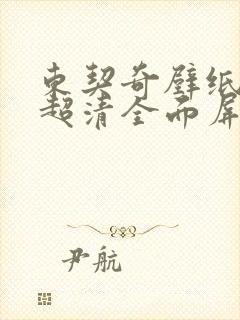 东契奇壁纸
超清全面屏
尹航